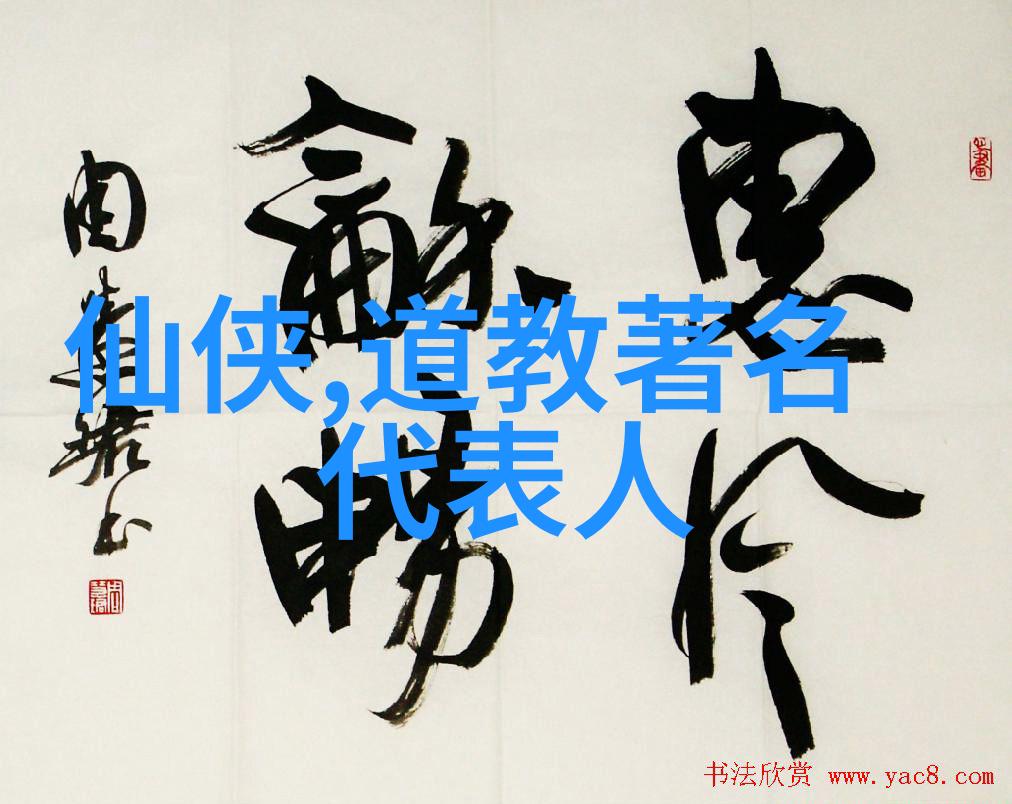 惠风
和畅
仙侠,道教著名
代表人
书法欣赏 www.yac8.com